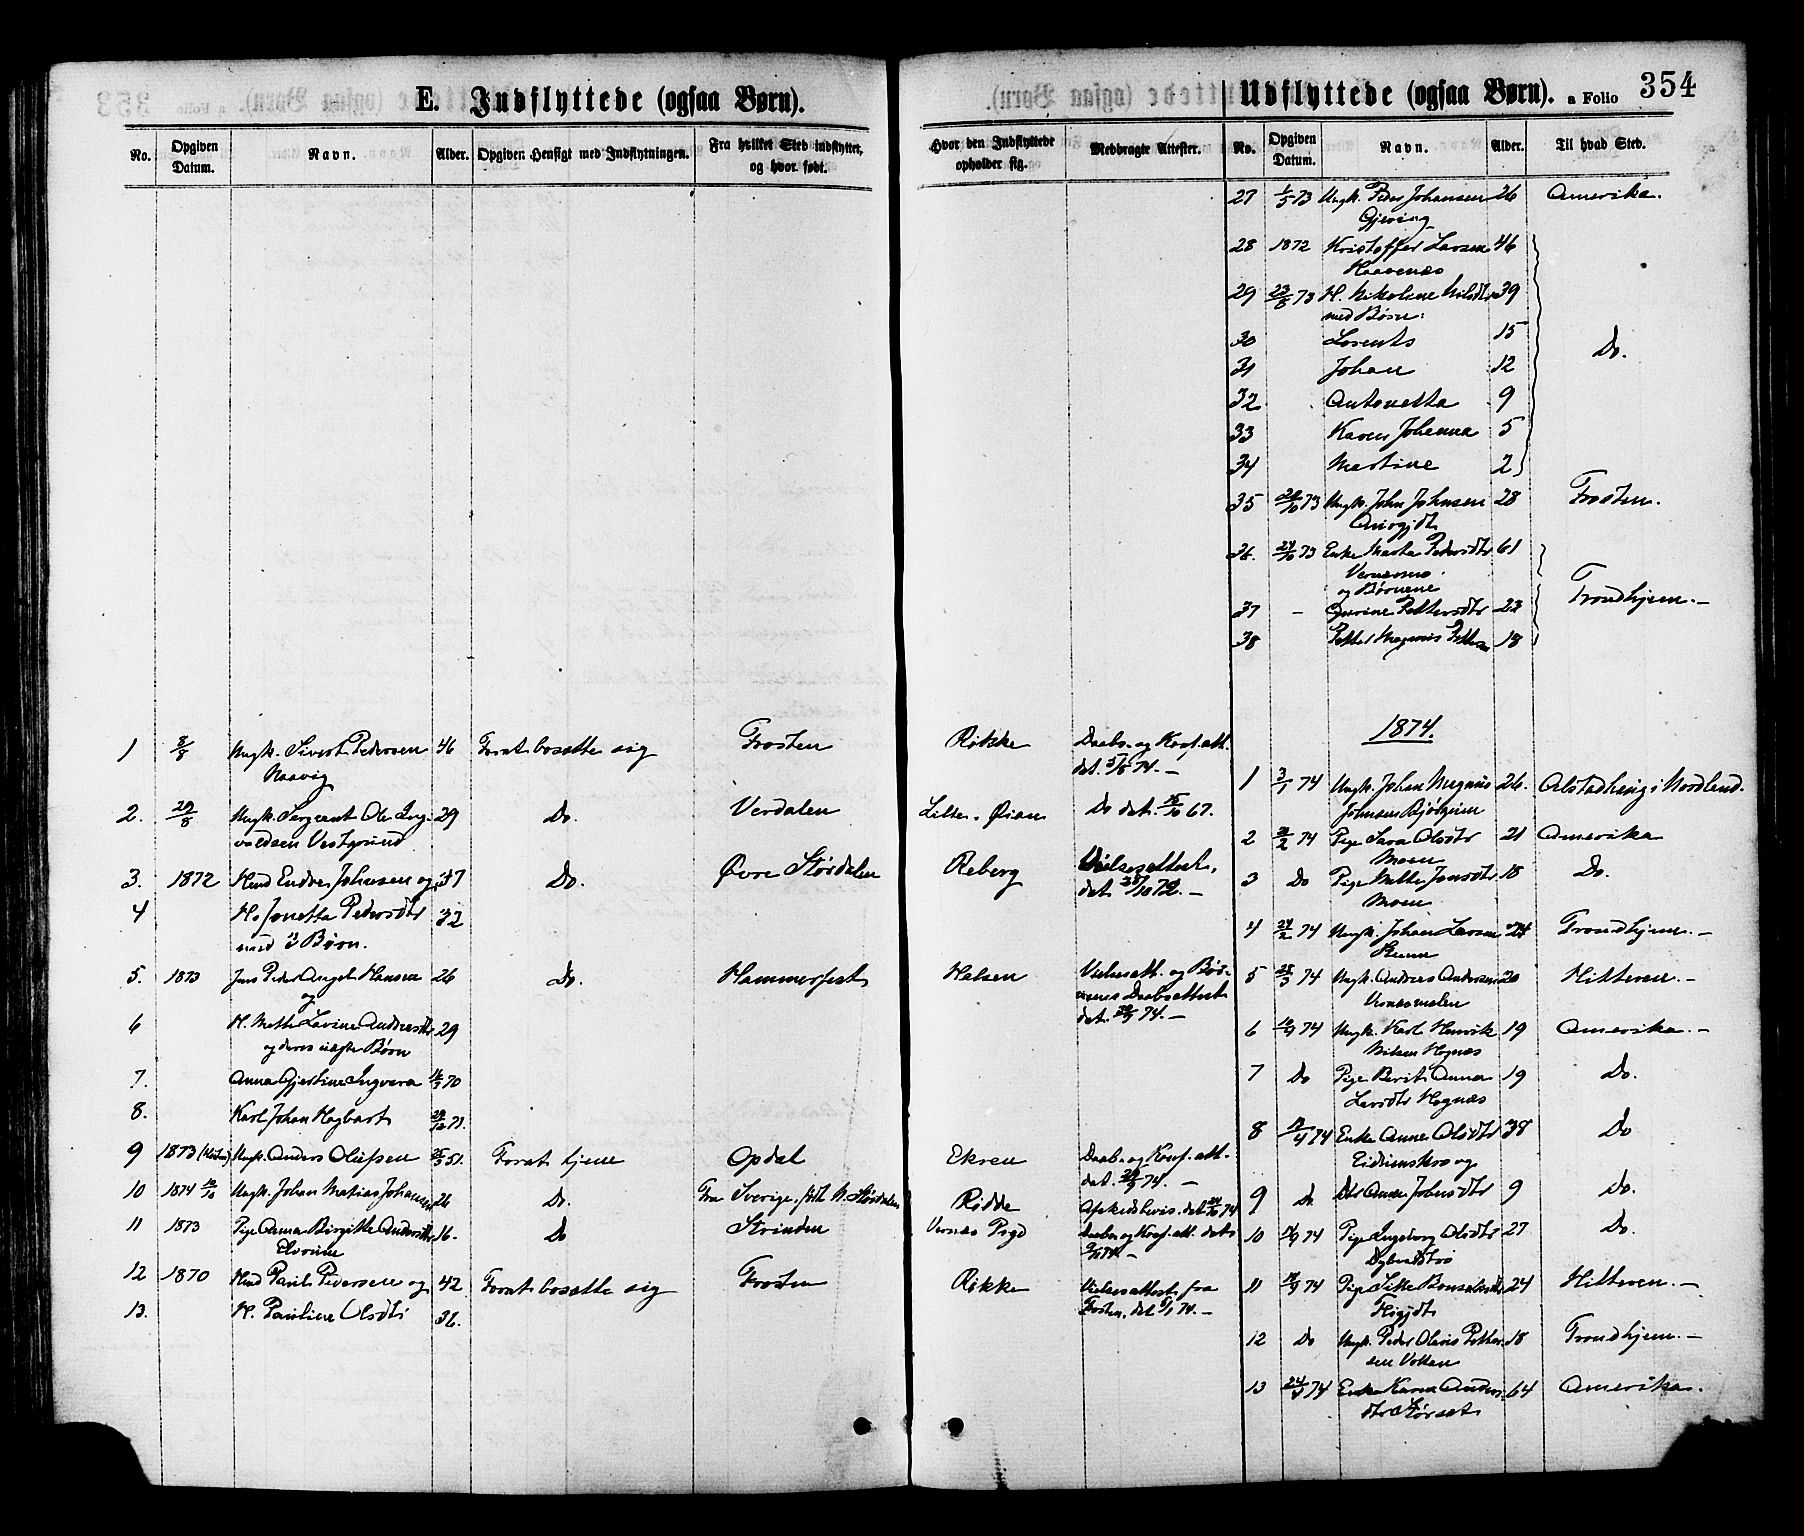 E. Indflyttede (ogsaa Børn).
No. Opgiven Datum. Navn. Alder. Opgiven Hensigt med Indflytningen. Fra hvilket Sted indflyttet, og hvor født. Hvor den Indflyttede opholder sig. Medbragte Attester.
1 8/8 Ungk. Sivert Pedersen 46 Forat bosætte sig Frosten Røkke Daabs- og Konf. att.
Naavig dat. 5/8 74. —
2. 29/8 Ungk. Sergeant Ole Ing- 29 Do. Verdalen Lille-Øian Do dat. 15/10 67.
valdsen Vestgrund
3. 1872 Hmd Endre Johnsen og 37 Do. Øvre Størdalen Reberg Vielsesattest,
4 H. Jonetta Pedersdtr 32 dat. 10 72. —
med 3 Børn.
5. 1873 Jens Peder Angel Hansen 26 Do. Hammerfest Halsen Vielsesatt. og Bør-
og nenes Daabsattest
6 H. Mette Lavine Andreasdtr 29 dat. 74. —
og deres ægte Børn
7. Anna Gjertine Ingvara 70
8. Karl Johan Hagbart 12 71.
9 1873 Ungk. Anders Olufsen 51. Forat tjene Opdal Ekren Daabs og Konf. att.
dat. 29/9 74. —
10 1874 12/10 Ungk. Johan Matias Johansen 26 Do. Fra Sverige, født N. Størdalen Rødde Afskedsbevis. dat. 74
11 1873 Pige Anna Birgitte Andersdtr 16. Do Strinden Vernæs Prgd Daabs og Konf. att. dat.
74. —
12 1870 Hmd Paul Pedersen og 42 Forat bosætte sig Frosten Røkke Vielsesattest fra
13. H. Pauline Olsdtr 36. Frosten, dat. 74. —
Udflyttede (ogsaa Børn). a Folio 354
No. Opgiven Datum. Navn. Alder. Til hvad Sted.
27 1/5 73 Ungk. Peder Johansen 26 Amerika.
Gjeving
28 1872 Kristoffer Larsen 46
Haavenæs
29 23/8 73 H. Nikoline Nilsdtr 39
med Børn:
30 Lorents 15 Do.
31 Johan 12
32 Antonetta 9
33 Karen Johanna 5
34 Martine 2
35 73 Ungk. John Johnsen 28 Frosten.
36. 24/10 73 Enke Marta Pedersdtr 61
Vernesmo
og Børnene Trondhjem. —
37 – Gurine Pettersdtr 23
38 Petter Magnus Petters. 18
1874.
1 3/1 74 Ungk. Johan Magnus 26. Alstadhaug i Nordland.
Johnsen Bjørgeien
2 2 74 Pige Sara Olsdtr 21 Amerika
Moen
3 Do Pige Mette Jonsdtr 18 Do.
Moen
4 24/2 74 Ungk. Johan Larsen 24 Trondhjem. —
5 3 74 Ungk. Andreas Andersen 20 Hitteren. —
6 74 Ungk. Karl Henrik 19 Amerika. —
Nilsen Hognæs
7 Do Pige Berit Anna 19 Do.
Larsdtr Hognæs
8 4 74 Enke Anne Olsdtr 38 Do
og
9 Do Dtr Anne Johnsdtr 9 Do.
10 74 Pige Ingeborg Olsdtr 27 Do.
11 74 Pige Sitte 24 Hitteren. —
12 Do Ungk. Peder Olaus Petter- 18 Trondhjem. —
sen Vollan
13 24 74 Enke Karen Anders- 64 Amerika.
dtr Størset